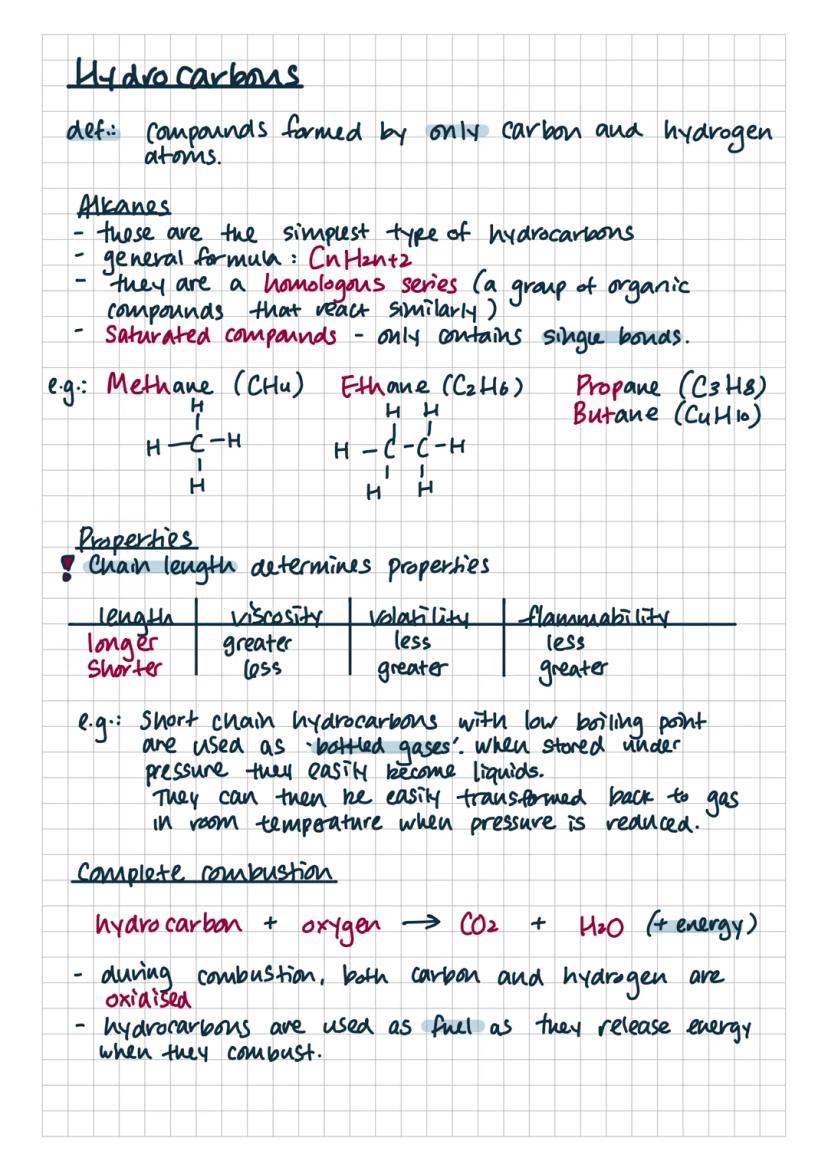 Hydrocarbons
def.: compounds formed by only carbon and hydrogen
atoms.
Alkanes
- these are the simplest type of hydrocarbons
- general formula : CnH2n+2
- they are a homologous series (a group of organic
compounds that react similarly)
- Saturated compounds - only contains single bonds.
e.g.: Methane (CH4) Ethane (C2H6) Propane (C3H8)
Butane (C4H10)
H H H
H-C-H H-C-C-H
H H H
Properties
! Chain length determines properties
length viscosity volatility flammability
longer greater less less
Shorter less greater greater
e.g.: Short chain hydrocarbons with low boiling point
are used as 'bottled gases'. When stored under
pressure they easily become liquids.
They can then be easily transformed back to gas
in room temperature when pressure is reduced.
Complete combustion
hydrocarbon + oxygen → CO2 + H2O (+ energy)
- during combustion, both carbon and hydrogen are
oxidised
- hydrocarbons are used as fuel as they release energy
when they combust.